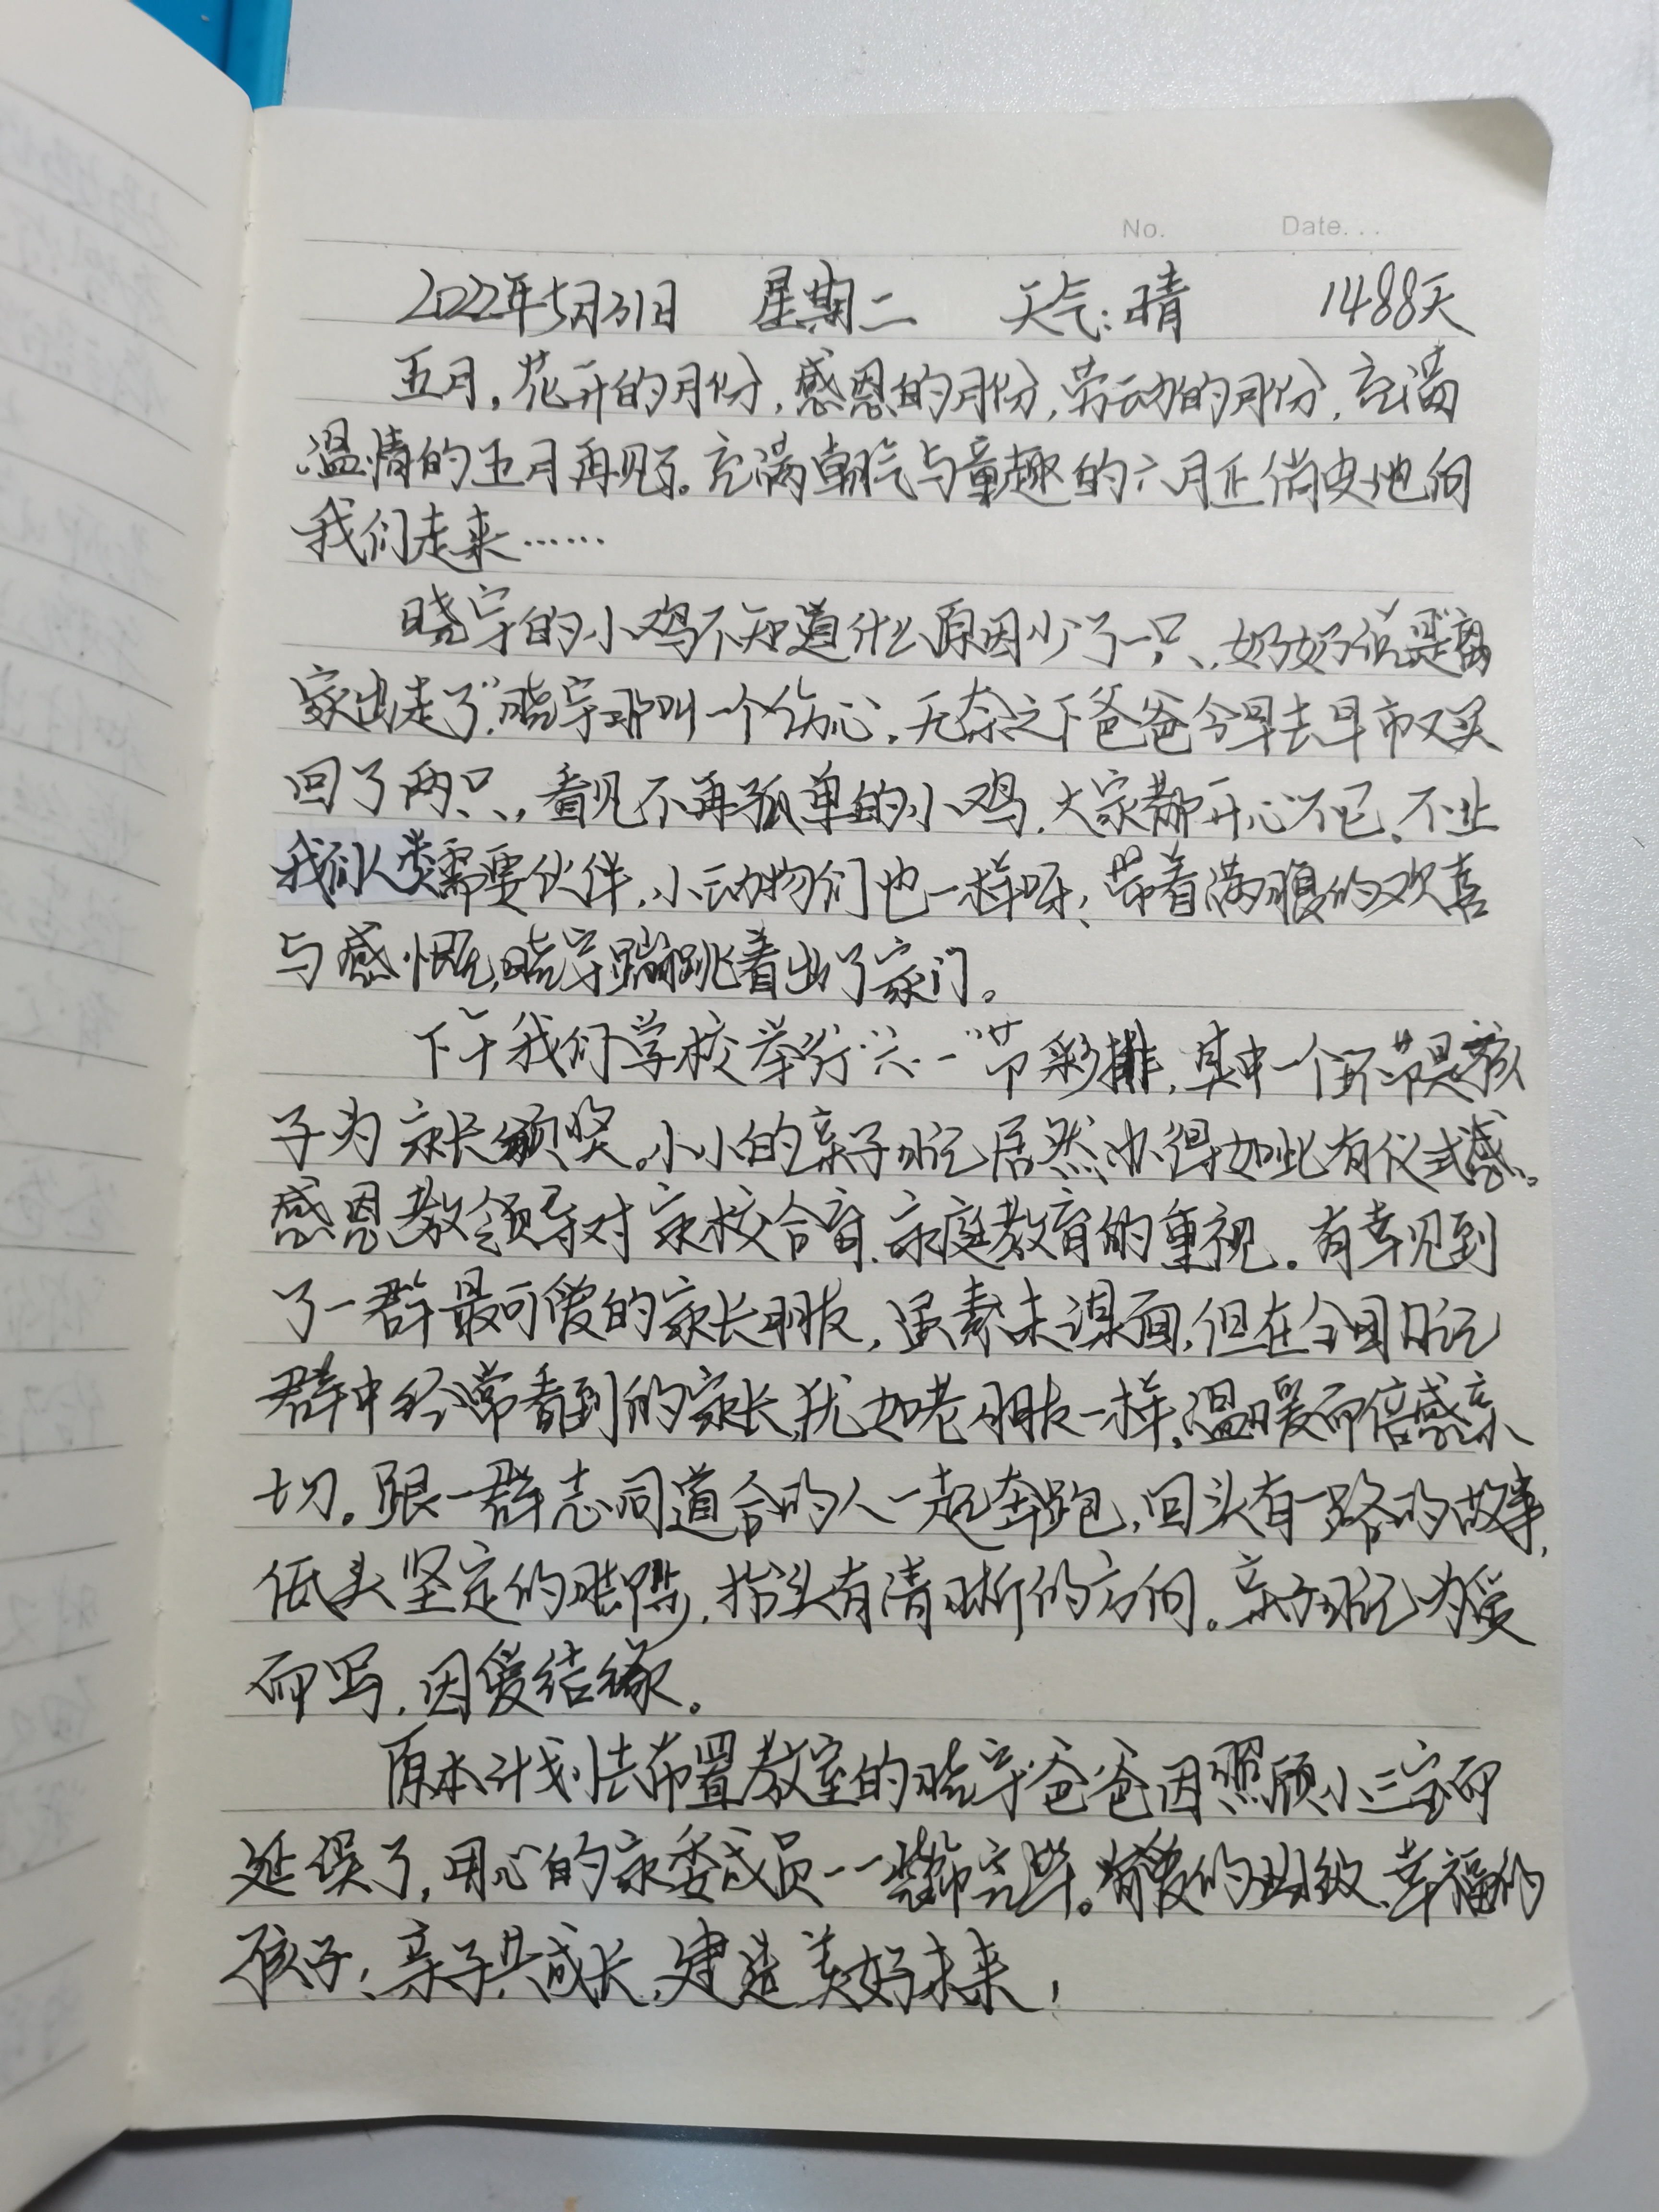 No. Date...
2022年5月31日 星期二 天气:晴 1488天
五月,花开的月份,感恩的月份,劳动的月份,充满
温情的五月再见了。充满朝气与童趣的六月正俏皮地向
我们走来……
晓宇的小鸡不知道什么原因少了一只,奶奶说是"离
家出走了",晓宇那叫一个伤心,无奈之下爸爸今早去早市又买
回了两只,看见不再孤单的小鸡,大家都开心不已,不止
我们人类需要伙伴,小动物们也一样呀!带着满腹的欢喜
与感慨,晓宇蹦跳着出了家门。
下午我们学校举行"六·一"节彩排,其中一个环节是孩
子为家长颁奖。小小的亲子日记居然办得如此有仪式感。
感恩教领导对家校合育、家庭教育的重视。有幸见到
了一群最可爱的家长朋友,虽素未谋面,但在全国日记
群中经常看到的家长,犹如老朋友一样,温暖而倍感亲
切。跟一群志同道合的人一起奔跑,回头有一路的故事,
低头坚定的脚步,抬头有清晰的方向。亲子日记为爱
而写,因爱结缘。
原本计划去布置教室的晓宇爸爸因照顾小三宝而
延误了,用心的家委成员一一装饰完毕。有爱的班级、幸福的
孩子!亲子共成长,建造美好未来!